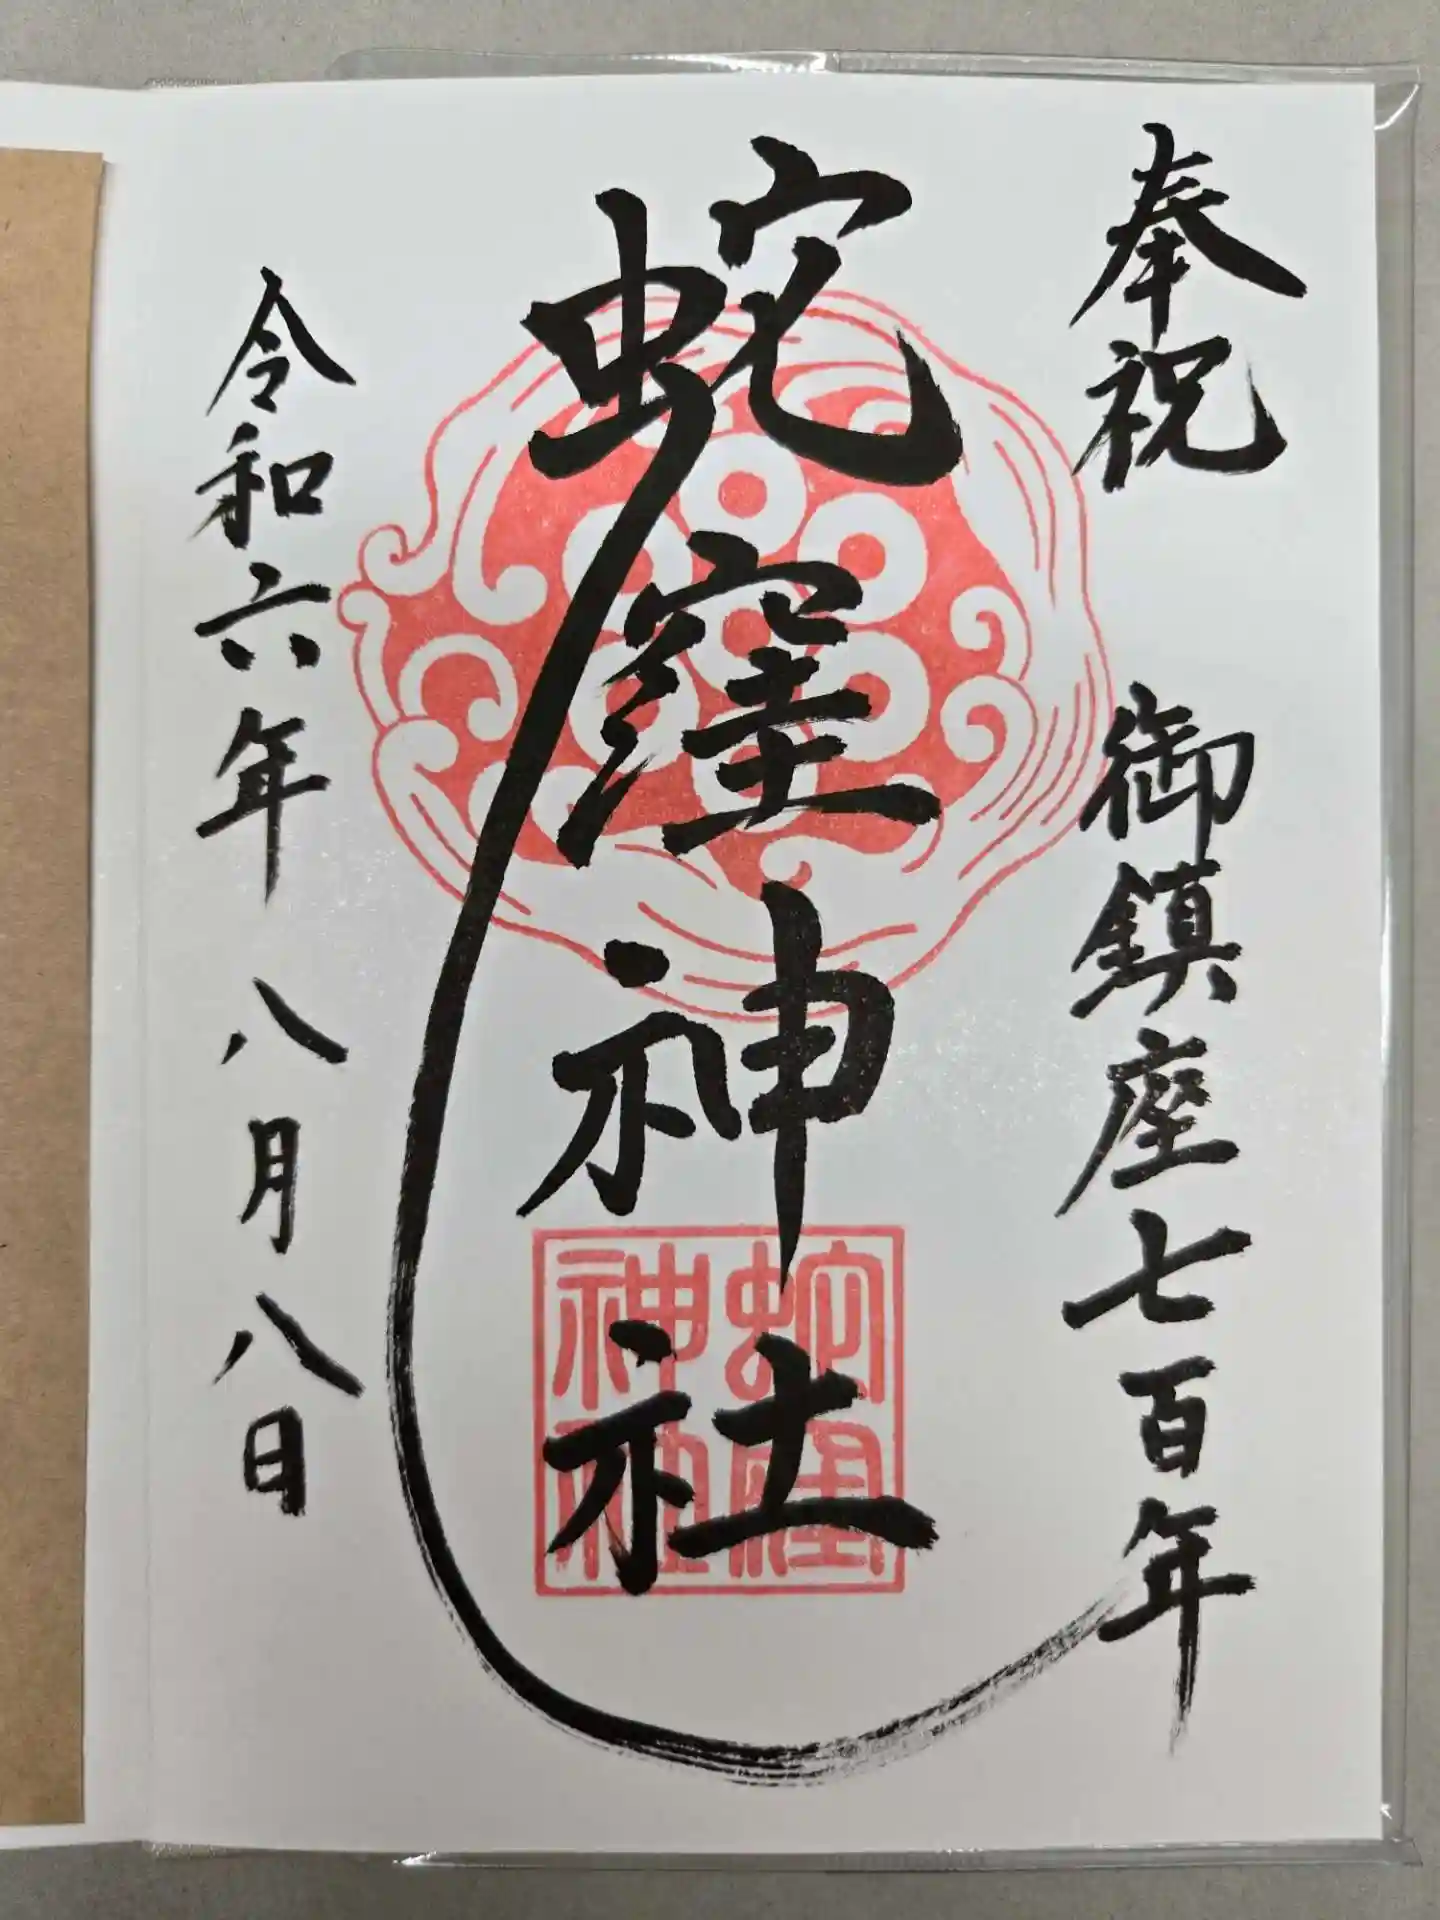 奉祝 御鎮座七百年
蛇窪神社
蛇窪
神社
令和六年 八月八日